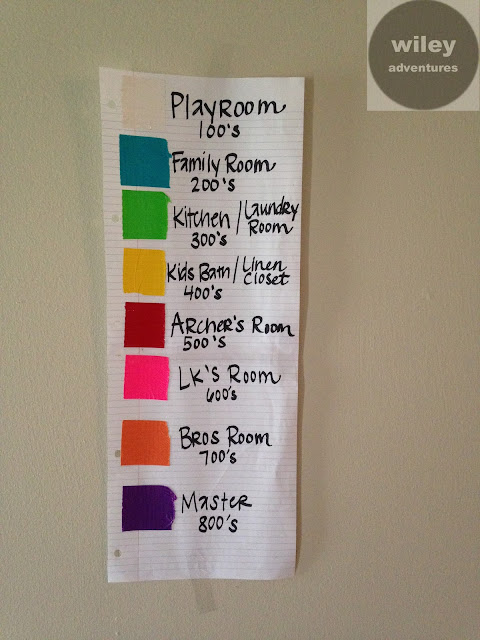 wiley
adventures
PlayRoom
100's
Family Room
200's
Kitchen / Laundry Room
300's
Kids Bath / Linen Closet
400's
Archer's Room
500's
LK's Room
600's
Bros Room
700's
Master
800's